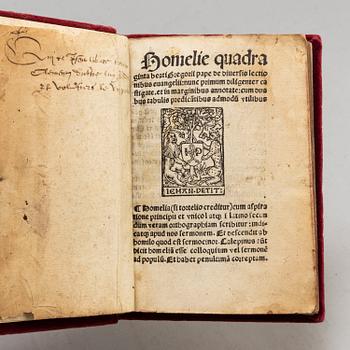 Homelie quadra
ginta beati Gregorii pape de diversis lectio
nibus evangelii: nunc primum diligenter ca
stigate, et in marginibus annotate: cum duo
bus tabulis predicātibus admodū vtilibus
IEHAN·PETIT:
Homelia (si tortelio creditur) cum aspira
tione principii et vnico l atq; i latino secun
dum veram orthographiam scribitur: indi
catq; apud nos sermonem. Et descendit ab
homilo quod est sermocinor. Calepinus: (ut)
dicit homeliā esse colloquium vel sermonē
ad populū. Et habet penultimā correptam.